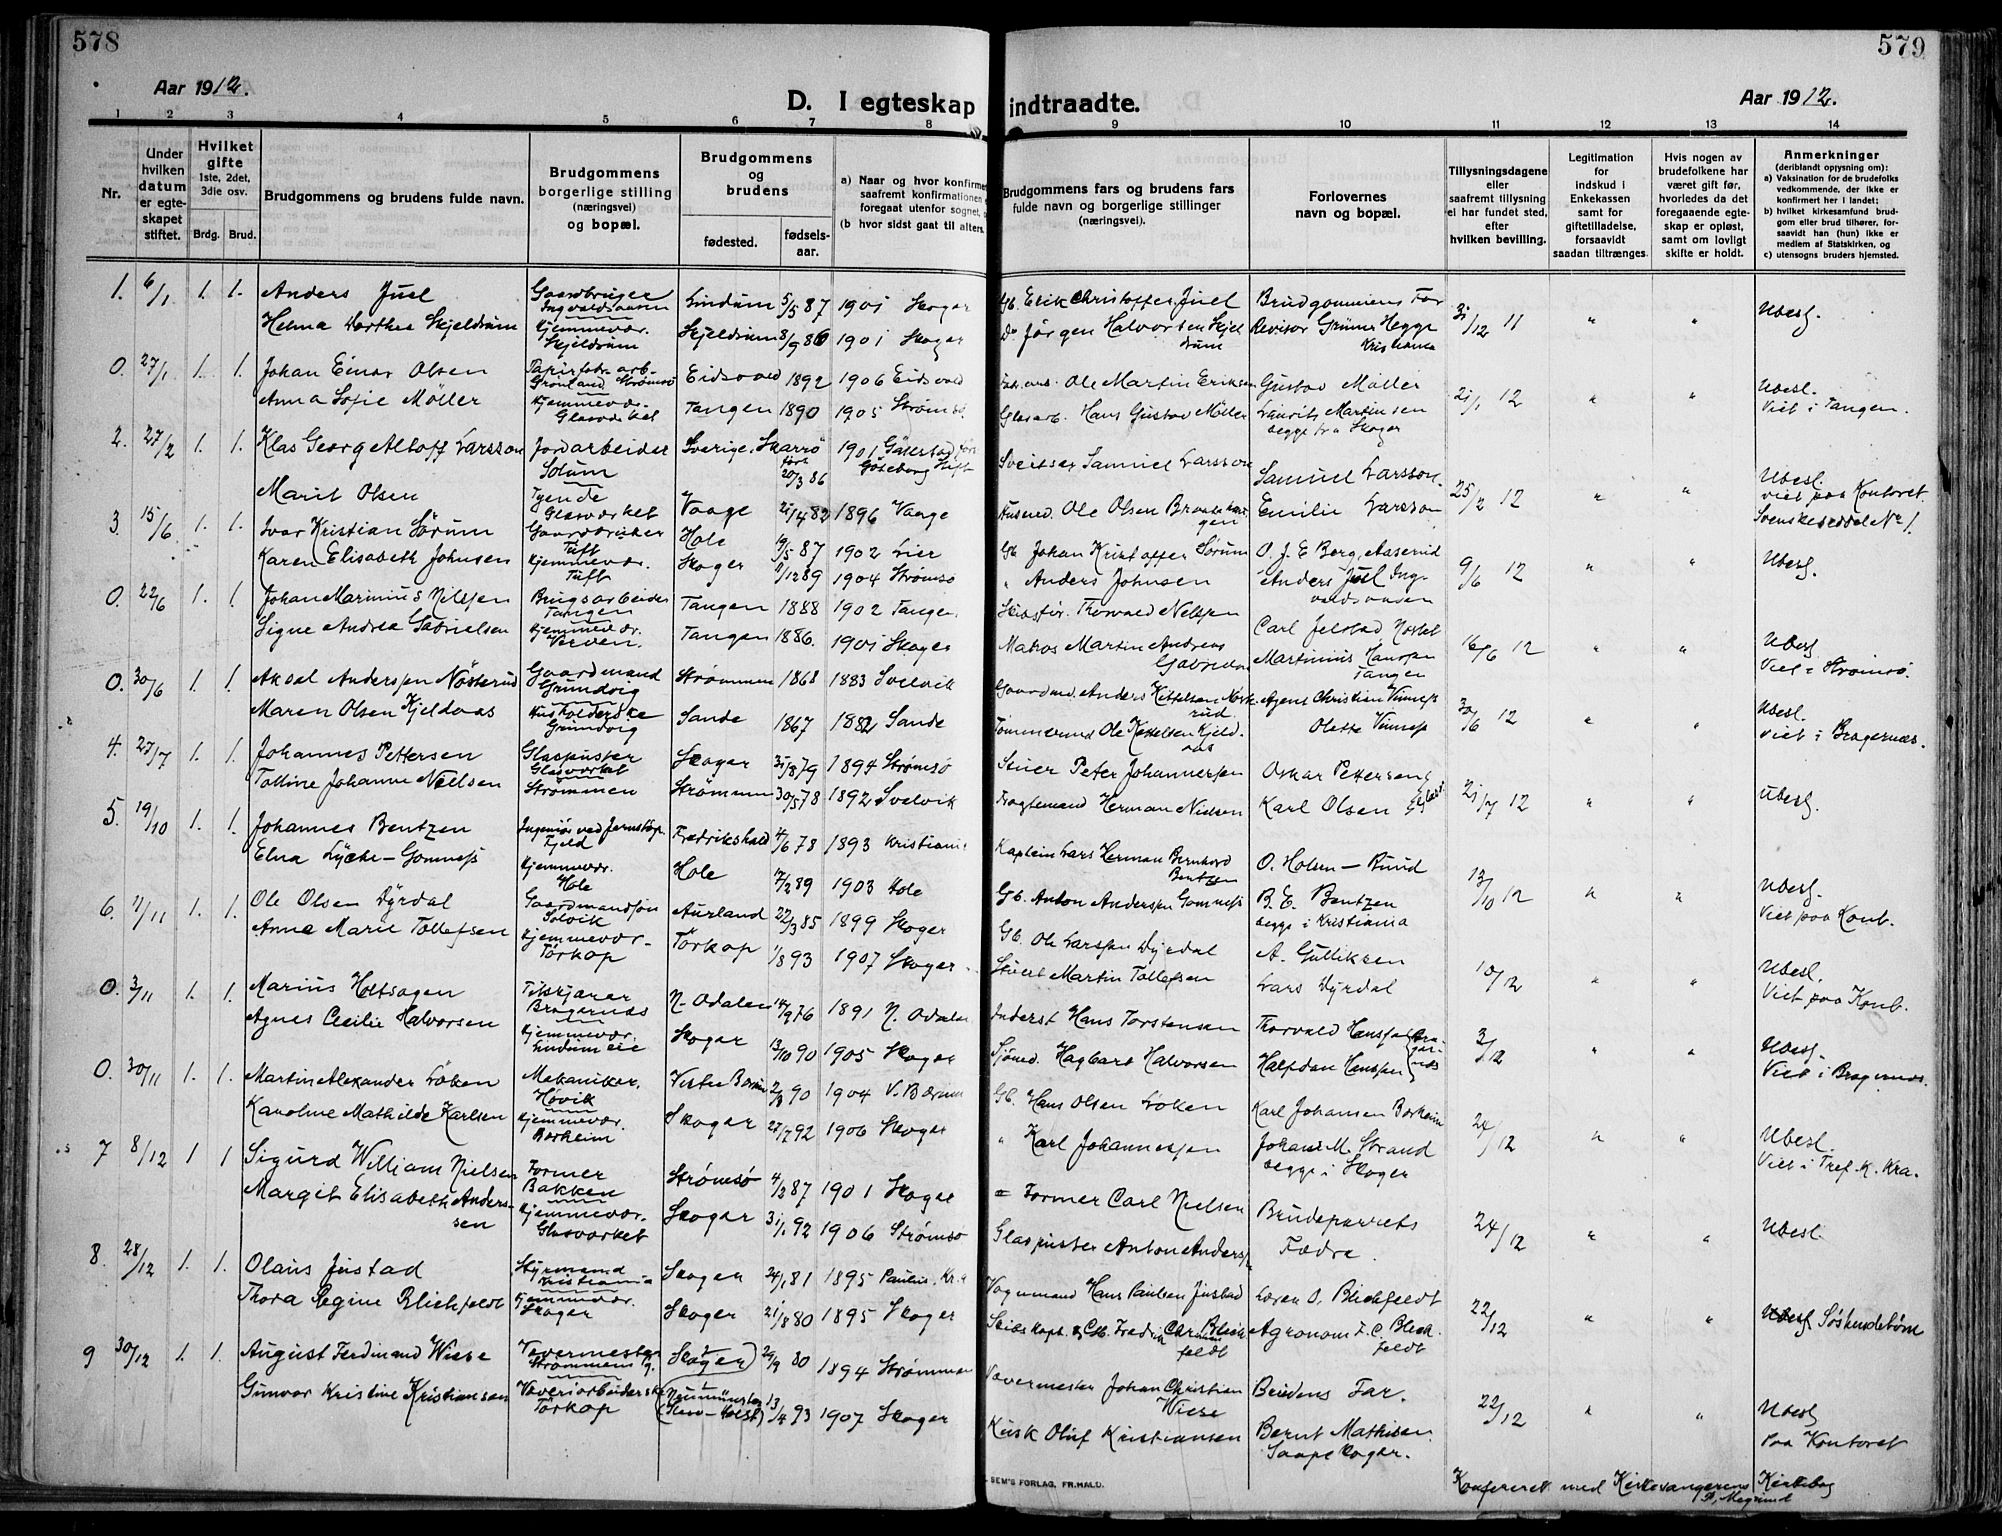 578
579
Aar 1912.
D. I egteskap indtraadte.
Aar 1912.
1 2 3 4 5 6 7 8 9 10 11 12 13 14
Nr.
Under hvilken datum er egteskapet stiftet.
Hvilket gifte 1ste, 2det, 3die osv.
Brdg. Brud.
Brudgommens og brudens fulde navn.
Brudgommens borgerlige stilling (næringsvei) og bopæl.
Brudgommens og brudens
fødested. fødselsaar.
a) Naar og hvor
saafremt konfirmationen
foregaat utenfor sognet,
(b hvor sidst gaat til alters.
Brudgommens fars og brudens fars fulde navn og borgerlige stillinger (næringsvei).
Forlovernes navn og bopæl.
Tillysningsdagene eller saafremt tillysning ei har fundet sted, efter hvilken bevilling.
Legitimation for indskud i Enkekassen samt for giftetilladelse, forsaavidt saadan tiltrænges
Hvis nogen av brudefolkene har været gift før, hvorledes da det foregaaende egteskap er opløst, samt om lovligt skifte er holdt.
Anmerkninger
(deriblandt opjysning om):
a) Vaksination for de brudefolks vedkommende, der ikke er konfirmert her i landet;
b) hvilket kirkesamfund brudgom eller brud tilhører, forsaavidt han (hun) ikke er medlem af Statskirken, og
c) utensogns bruders hjemsted.
1. 6/1 1. 1. Anders Juel Gaardbruger Ingvaldsausen Lindum 5/5 87 1901 Skoger Gb. Erik Christoffer Juel Brudgommens Far 31/12 11 " " Ubesl.
Helma Dorthea Skjeldrum Hjemmevær. Skjeldrum Skjeldrum 8/9 86 1901 Skoger Do Jörgen Halvorsen Skjeldrum Revisor Grünes Hegge Kristiania
0. 27/1 1. 1. Johan Einar Olsen Papirfabr. arb. Grönland Strömsö Eidsvold 1892 1906 Eidsvold Ole Martin Eriksen Gustav Möller 21/1 12 " " Ubesl.
Anna Sofie Möller Hjemmevær. Glasværket Tangen 1890 1905 Strömsö Glasarb. Hans Gustav Möller Laurits Martinsen begge fra Skoger Viet i Tangen.
2. 27/2 1. 1. Klas Georg Altoff Larsson Jordarbeider Solum Sverige, Skarrö 20/3 86 1901 Göteborg Stift Sveitser Samuel Larsson Samuel Larsson. 25/2 12 " " Ubesl. viet paa Kontoret.
Marit Olsen Tyende Glasværket Vaage 21/4 82 1896 Vaage Ole Olsen Emilie Larsson Svenskeseddel No 1.
3. 15/6 1. 1. Ivar Kristian Sörum Gaardbruker Tuft Hole 19/5 87 1902 Lier Gb. Johan Kristoffer Sörum O. J. E Berg, Aaserud 9/6 12 " " Ubesl.
Karen Elisabeth Johnsen Hjemmevær. Tuft Skoger 1/12 89 1904 Strømsö " Anders Johnsen Anders Juel Ingvaldsausen
0. 22/6 1. 1. Johan Marinius Nilssen Brugsarbeider Tangen Tangen 1888 1902 Tangen Thorvald Nelssen Carl Jelstad 16/6 12 " " Ubesl.
Signe Andrea Gabrielsen Hjemmevær. Verven. Tangen 1886. 1901 Skoger Matros Martin Andreas Gabrielsen Martinius Hansen Tangen Viet i Strømsö.
0. 30/6 1. 1. Aksel Anderssen Nösterud Gaardmand Grundvig Strømmen 1868 1883 Svelvik Gaardmd. Anders Kittelsen Agent Christian Vinnes 30/6 12 " " Ubesl.
Maren Olsen Kjeldaas Husholderske Grundvig Sande 1867 1882 Sande Tömmermand Ole Kittelsen Kjeldaas Olette Vinnes Viet i Bragernæs.
4. 27/7 1. 1. Johannes Pettersen Glaspuster Glasværket Skoger 31/8 79 1894 Strømsö Peter Johannessen Oskar Pettersen 21/7 12 " " Ubesl.
Tolline Johanne Nielsen Strømmen Strømmen 30/5 78 1892 Svelvik Fragtemand Herman Nielsen Karl Olsen
5. 19/10 1. 1. Johannes Bentzen Ingeniör ved Jernstöp. Fjeld Fredrikshald 4/6 78 1893 Kristiania Kaptein Lars Herman Bernhard Bentzen O. Holsen - Ruud 13/10 12 " " Ubesl.
Elna Lyche - Gomnæs Hjemmevær. Hole Hole 17/2 89 1903 Hole Gb. Anton Anderssen Gomnæs B. E. Bentzen begge i Kristiania Viet paa Kont.
6. 11/11 1. 1. Ole Olsen Dyrdal Gaardmandssön Solvik Aurland 22/3 85 1899 Skoger Gb. Ole Larssen Dyrdal A. Gulliksen 10/12 " " Ubesl.
Anna Marie Tollefsen Hjemmevær. Törkop Törkop 1/8 93 1907 Skoger. Martin Tollefsen Lars Dyrdal Viet paa Kont.
0. 3/11 1. 1. Marius Holtsagen Bragernæs N. Odalen 14/9 76 1891 N. Odalen Inderst Hans Torstensen Thorvald Hanssen 3/12 " " Ubesl.
Agnes Cecilie Halvorsen Hjemmevær. Lindum eie Skoger 13/10 90 1905 Skoger Sjömd. Hagbart Halvorsen Halfdan Hanssen Bragernæs Viet i Bragernæs.
0. 30/11 1. 1. Martin Alexander Löken Mekaniker. Høvik Vestre Bærum 2/3 90 1904 V. Bærum Gb. Hans Olsen Löken Karl Johansen Borheim 24/12 " " Ubesl.
Karoline Mathilde Karlsen Hjemmevær. Borheim Skoger 27/7 92 1906 Skoger " Karl Johannessen Johans M. Strand begge i Skoger Viet i Tref. K. Kra.
7 8/12 1 1 Sigurd William Nielsen Former Bakken Strømsø 4/2 87 1901 Skoger Former Carl Nielsen Brudeparrets 24/12 " " Ubesl.
Margit Elisabeth Anderssen Hjemmevær. Glasværket Skoger 31/1 92 1906 Strømsö Glaspuster Anton Anderss Fædre.
8. 28/12 1. 1. Olaus Justad Styrmand Kristiania Skoger 24/1 81 1895 Paulus. Kr.a Vognmand Hans Paulsen Justad Søren O. Blichfeldt 22/12 " " Ubesl Søskendebörn
Thora Regine Blichfeldt Hjemmevær. Skoger Skoger 21/8 80 1895 Skoger Fredrik Chr. Blichfeldt Agronom F. C. Blichfeldt
9 30/12 1. 1. August Ferdinand Wiese Vævermester Strömmens Skoger 29/9 80 1894 Strømmen Vævermester Johan Christian Wiese Brudens Far. 22/12 " " Ubesl
Gunvor Kristine Kristiansen Væveriarbeiderske Törkop (Neumünster Slesv-Holst) 13/4 93 1907 Skoger Kusk Oluf Kristiansen Bernt Mathisen Skoger. Paa Kontoret
SEM'S FORLAG, FR.HALD.
Konfereret med Kirkesangerens Kirkebog